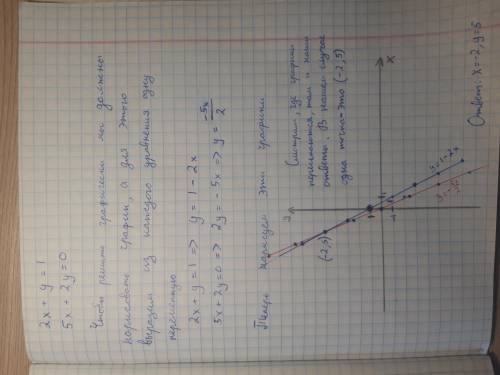 2x + y = 1
5x + 2y = 0
Чтобы решить графически мы должны
нарисовать графики, а для этого
выразим из каждого уравнения одну
переменную
2x + y = 1 => y = 1 - 2x
5x + 2y = 0 => 2y = -5x => y = -5x/2
Теперь нарисуем эти графики
Смотрим, где графики
пересекаются, там и наши
ответы. В нашем случае
одна точка - это (-2; 5)
y
x
(-2; 5)
1
1
y = 1 - 2x
Ответ: x = -2, y = 5